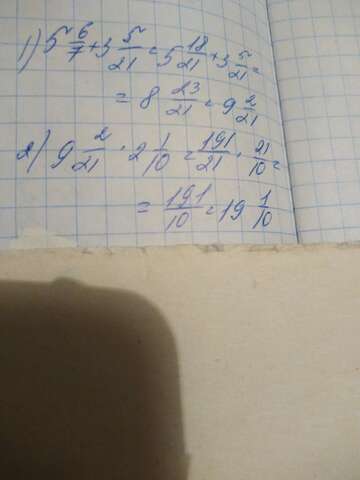 1) 5 6/7 + 3 5/21 = 5 18/21 + 3 5/21 =
= 8 23/21 = 9 2/21
2) 9 2/21 · 2 1/10 = 191/21 · 21/10 =
= 191/10 = 19 1/10